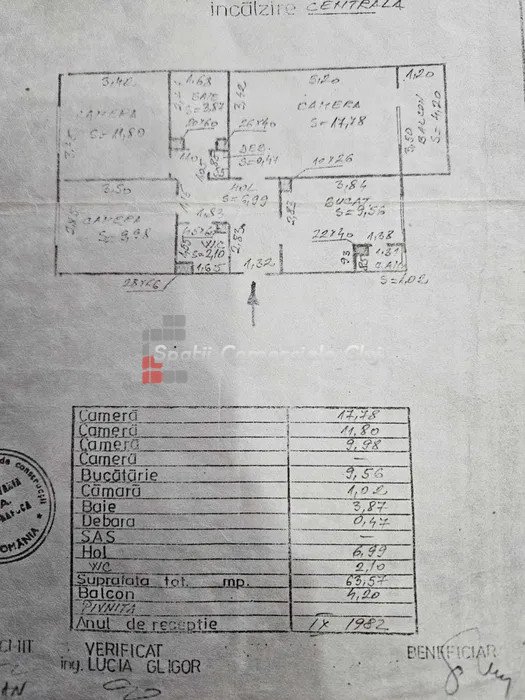 încălzire CENTRALA
3,42
1,68
5,20
1,20
CAMERA
S=11,80
BAIE
S=3,87
3,42
CAMERA
S=17,78
3,50
BALCON
S=4,20
20x60
26x40
DEB.
S=0,47
10x26
3,50
HOL
S=6,99
3,84
CAMERA
S=9,98
1,83
2,83
BUCAT
S=9,56
WC
S=2,10
2,83
22x40
1,38
1,65
1,32
93
1,31
CAM
S=1,02
28x26
Spatii Comerciale Cluj
Cameră 17,78
Cameră 11,80
Cameră 9,98
Cameră
Bucătărie 9,56
Cămară 1,02
Baie 3,87
Debara 0,47
SAS —
Hol 6,99
WC 2,10
Suprafata tot. mp. 63,57
Balcon 4,20
PIVNITA
Anul de receptie IX 1982
ROMÂNIA
VERIFICAT
ing. LUCIA GLIGOR
BENEFICIAR